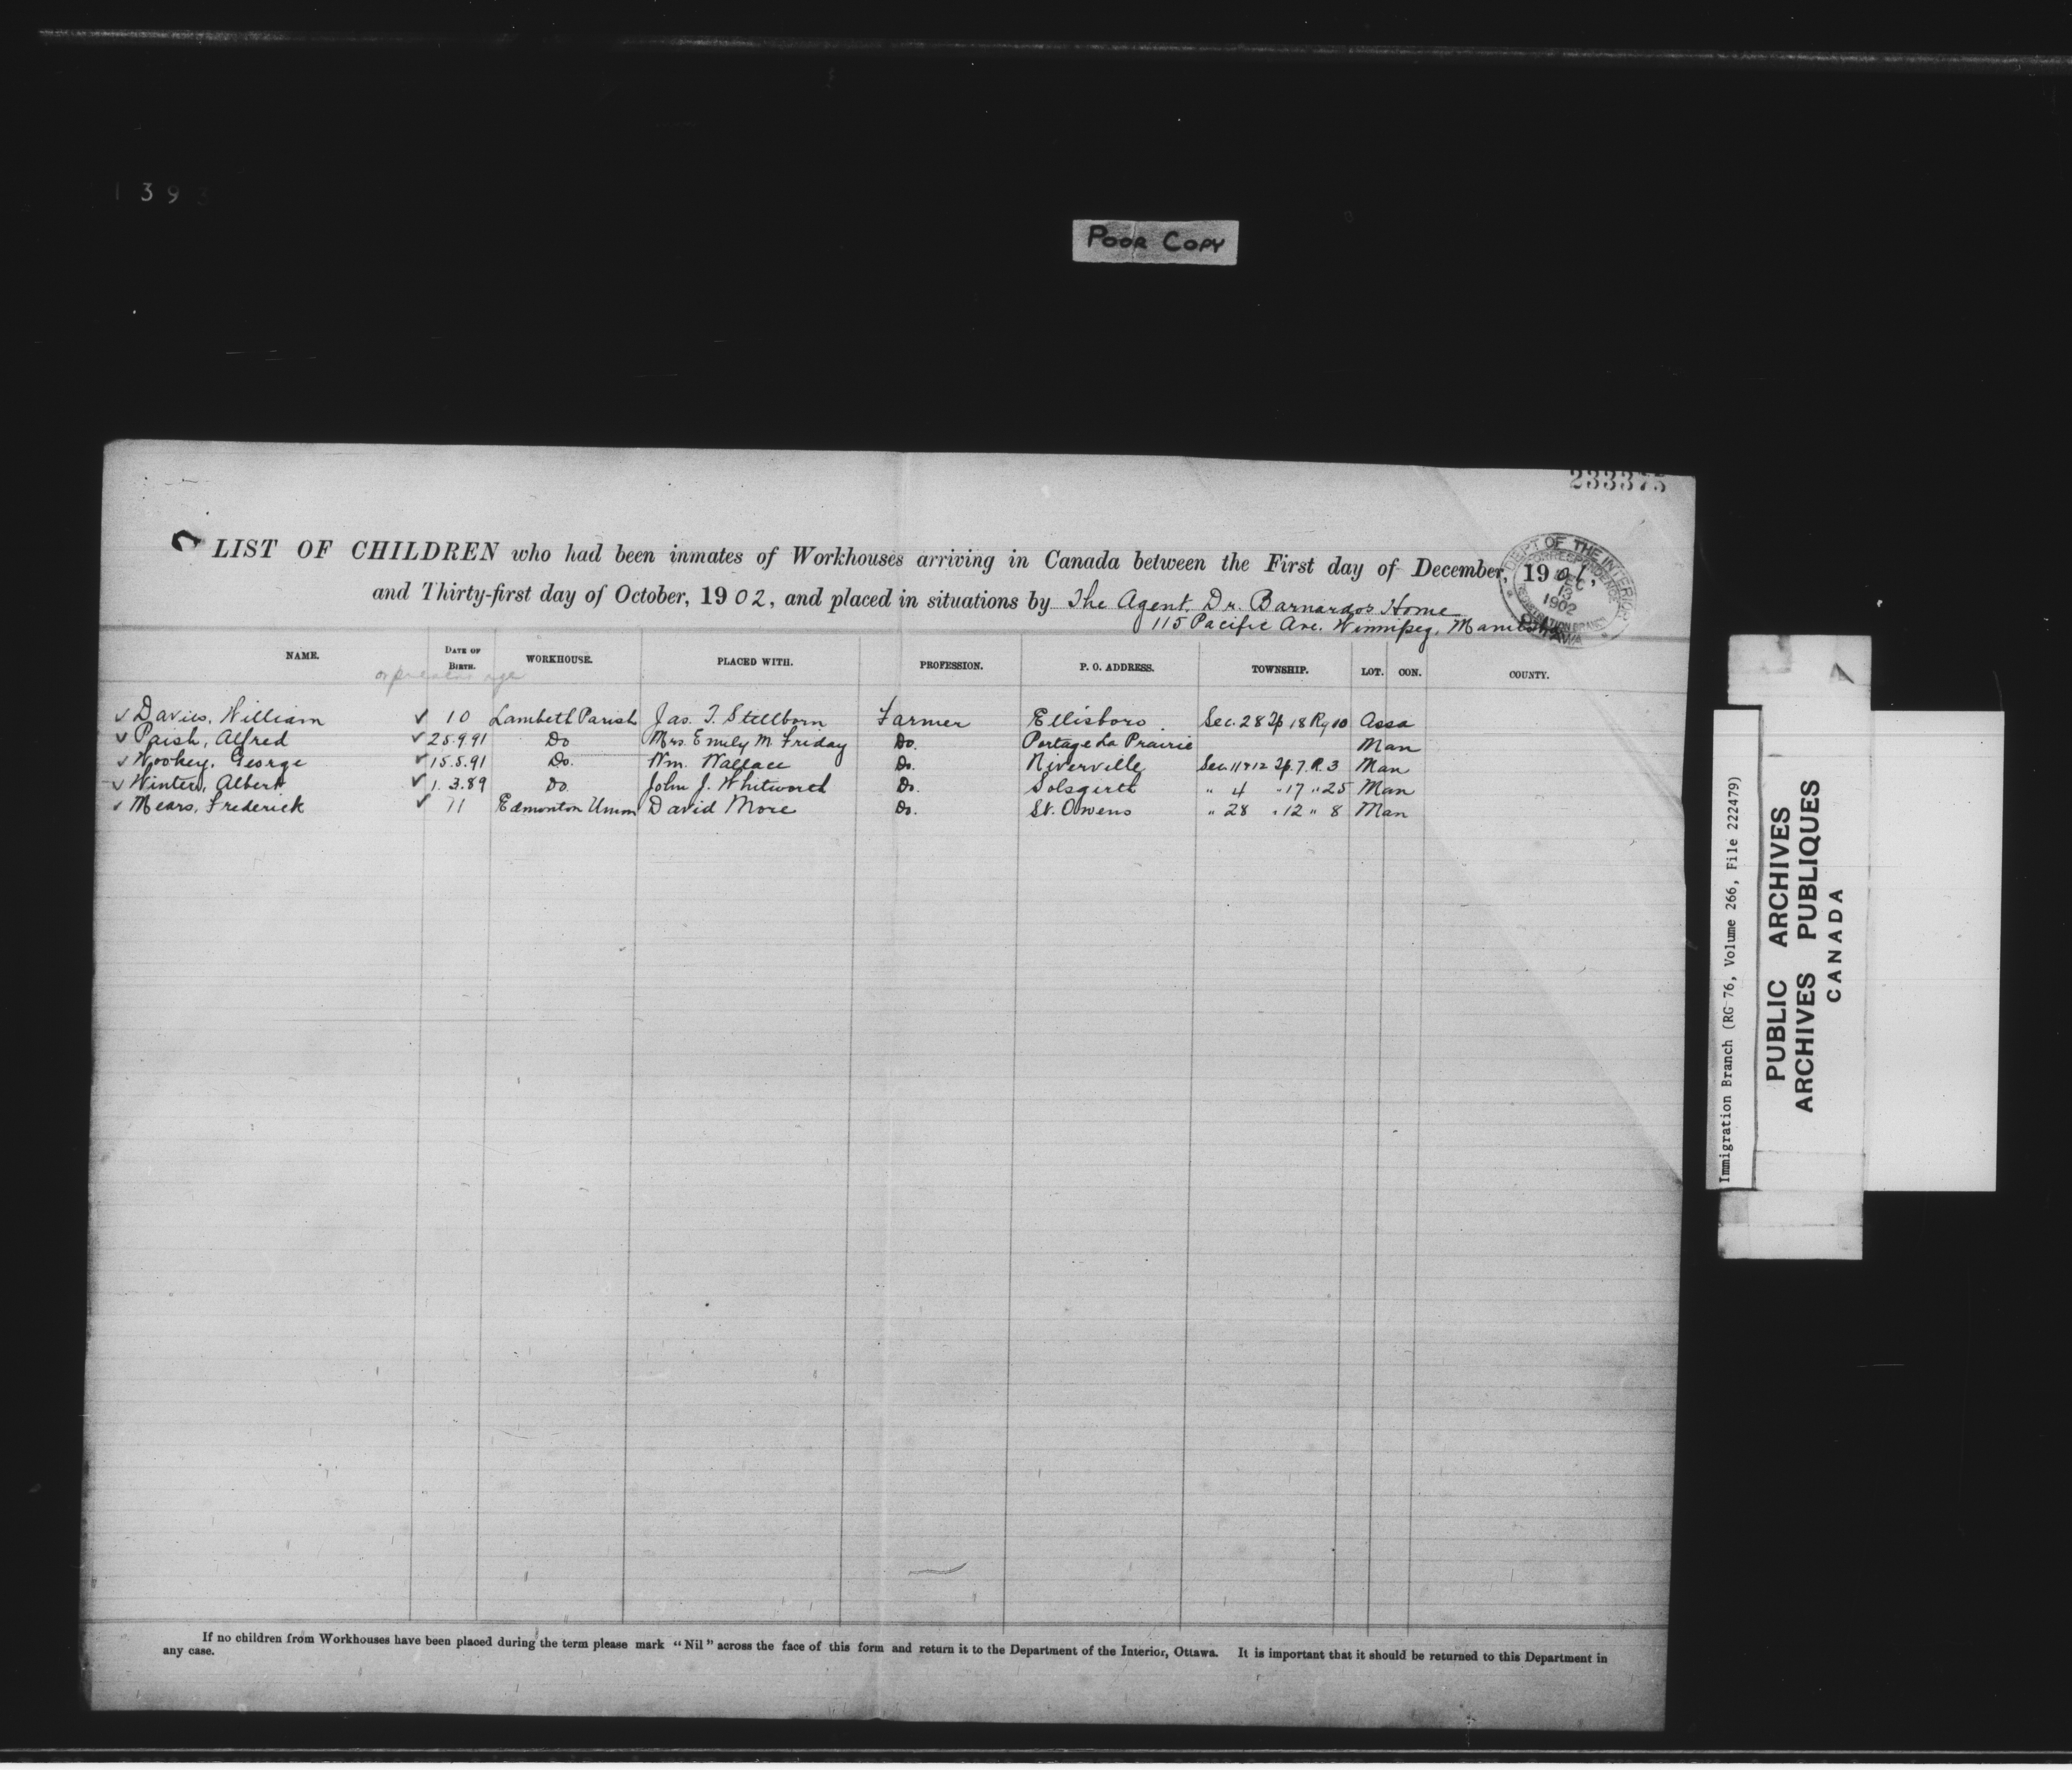 139
POOR COPY
233375
LIST OF CHILDREN who had been inmates of Workhouses arriving in Canada between the First day of December, 1901,
and Thirty-first day of October, 1902, and placed in situations by The Agent, Dr. Barnardos Home
115 Pacific Ave. Winnipeg, Manitoba
DEPT OF THE INTERIOR
CORRESPONDENCE
DEC 13 1902
OTTAWA
NAME. DATE OF BIRTH. WORKHOUSE. PLACED WITH. PROFESSION. P. O. ADDRESS. TOWNSHIP. LOT. CON. COUNTY.
or present age
✓ Davies, William ✓ 10 Lambeth Parish Jas. T. Stillborn Farmer Ellisboro Sec. 28 Tp 18 Rg 10 Assa
✓ Paish, Alfred ✓ 25.9.91 Do Mrs. Emily M. Friday Do. Portage La Prairie Man
✓ Wookey, George ✓ 15.8.91 Do. Wm. Wallace Do. Niverville Sec. 11 & 12 Tp. 7. R. 3 Man
✓ Winters, Albert ✓ 1. 3.89 Do. John J. Whitworth Do. Solsgirth " 4 " 17 " 25 Man
✓ Mears, Frederick ✓ 11 Edmonton Union David More Do. St. Owens " 28 " 12 " 8 Man
If no children from Workhouses have been placed during the term please mark "Nil" across the face of this form and return it to the Department of the Interior, Ottawa. It is important that it should be returned to this Department in
any case.
Immigration Branch (RG 76, Volume 266, File 222479)
PUBLIC ARCHIVES
ARCHIVES PUBLIQUES
CANADA